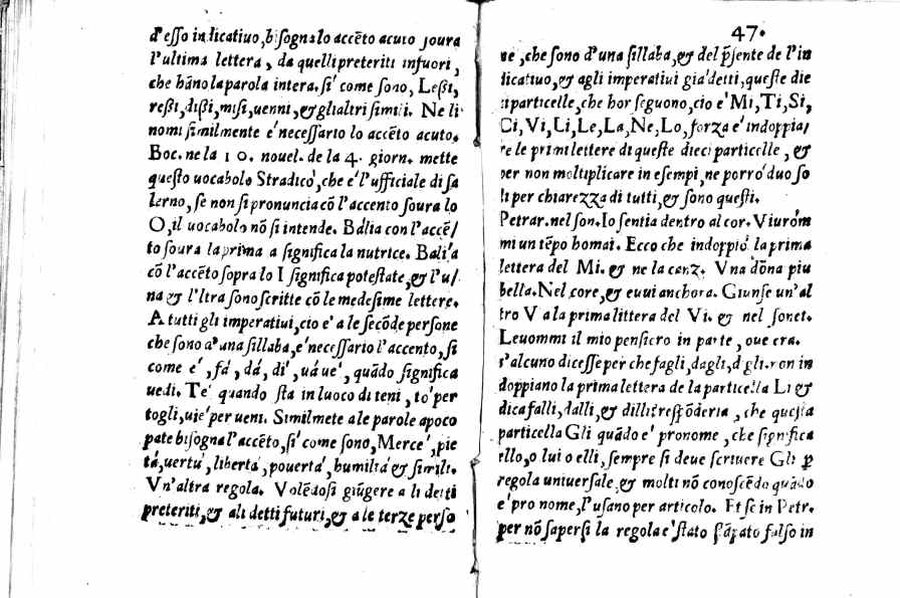 d'esso indicatiuo, bisogna lo accẽto acuto soura
l'ultima lettera, da quelli preteriti infuori,
che hãno la parola intera. sì come sono, Lessi,
ressi, dissi, misi, uenni, & gli altri simili. Ne li
nomi similmente e' necessario lo accẽto acuto.
Boc. ne la 10. nouel. de la 4. giorn. mette
questo uocabolo Stradicò, che è l'ufficiale di sa
lerno, se non si pronuncia cõ l'accento soura lo
O, il uocabolo nõ si intende. Balia con l'accẽ/
to soura la prima a significa la nutrice. Balía
cõ l'accẽto sopra lo I significa potestate, & l'u/
na & l'ltra sono scritte cõ le medesime lettere.
A tutti gli imperatiui, cio e' a le secõde persone
che sono d'una sillaba, e' necessario l'accento, si
come e', fa', da', di', ua ue', quãdo significa
uedi. Te' quando sta in luoco di teni, to' per
togli, uie' per ueni. Similmete a le parole apoco
pate bisogna l'accẽto, si' come sono, Merce', pie
ta', uertu', liberta', pouerta', humilta' & simili.
Vn'altra regola. Volẽdosi giũgere a li detti
preteriti, & a li detti futuri, & a le terze perso
47.
ne, che sono d'una sillaba, & del p̃sente de l'in
dicatiuo, & agli imperatiui gia' detti, queste die
ci particelle, che hor seguono, cio e' Mi, Ti, Si,
Ci, Vi, Li, Le, La, Ne, Lo, forza e' indoppia/
re le prime lettere di queste dieci particelle, &
per non moltiplicare in esempi, ne porro' duo so
li per chiarezza di tutti, & sono questi.
Petrar. nel son. Io sentia dentro al cor. Viurõm
mi un tẽpo homai. Ecco che indoppiò la prima
lettera del Mi. & ne la canz. Vna dõna piu
bella. Nel core, & euui anchora. Giunse un'al
tro V a la prima littera del Vi. & nel sonet.
Leuommi il mio pensiero in parte, oue era.
s'alcuno dicesse per che fagli, dagli, d gli. non in
doppiano la prima lettera de la particella Li &
dica falli, dalli, & dilli respõderia, che questa
particella Gli quãdo e' pronome, che significa
ello, o lui o elli, sempre si deue scriuere Gli ꝑ
regola uniuersale & molti nõ conoscẽdo quãdo
e' pro nome, l'usano per articolo. Et se in Petr.
per nõ sapersi la regola e' stato stãpato falso in